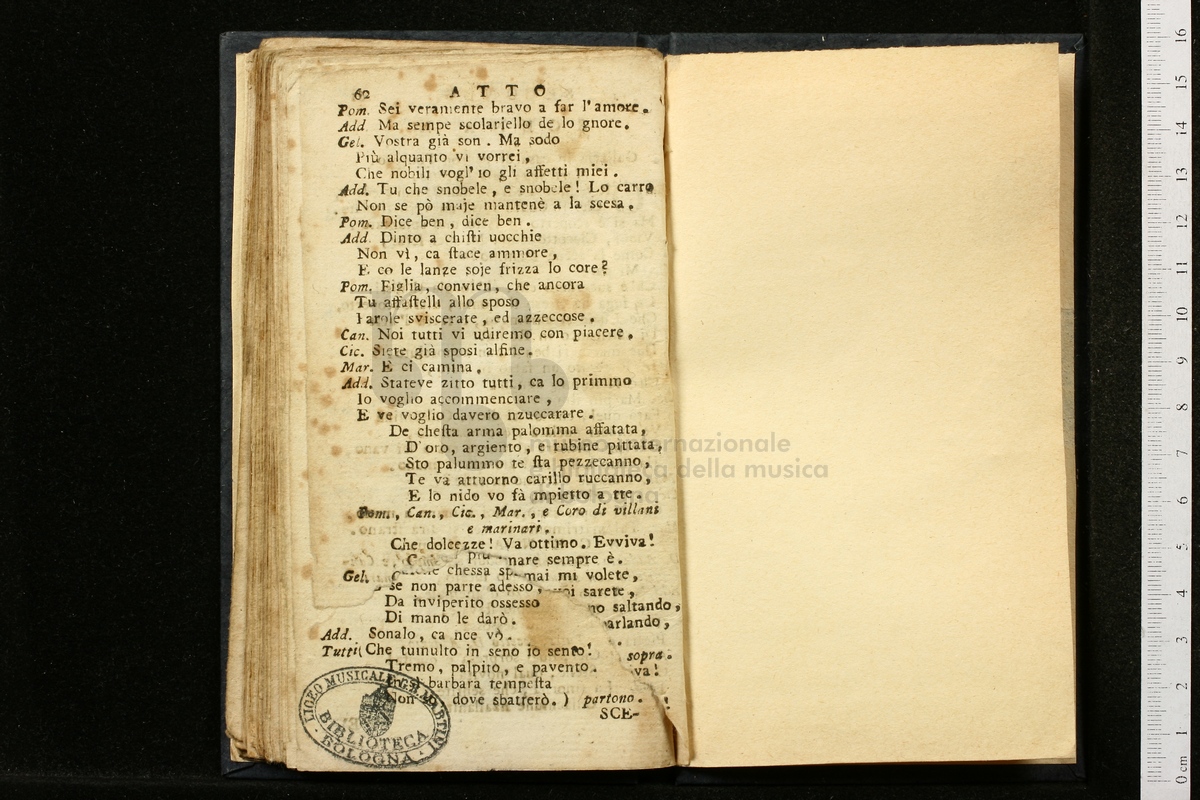 62 ATTO
Pom. Sei veramente bravo a far l'amore.
Add. Ma sempe scolariello de lo gnore.
Gel. Vostra già son. Ma sodo
Più alquanto vi vorrei,
Che nobili vogl'io gli affetti miei.
Add. Tu che snobele, e snobele! Lo carro
Non se pò maje mantenè a la scesa.
Pom. Dice ben, dice ben.
Add. Dinto a chisti uocchie
Non vì, ca stace ammore,
E co le lanze soje frizza lo core?
Pom. Figlia, convien, che ancora
Tu affastelli allo sposo
Parole sviscerate, ed azzeccose.
Can. Noi tutti vi udiremo con piacere.
Cic. Siete già sposi alfine.
Mar. E ci camina.
Add. Stateve zitto tutti, ca lo primmo
Io voglio accommenciare,
E ve voglio davero nzuccarare.
De chesta arma palomma affatata,
D'oro, argiento, e rubine pittata,
Sto palummo te sta pezzecanno,
Te va attuorno carillo ruccanno,
E lo nido vo fà mpietto a tte.
Pom., Can., Cic., Mar., e Coro di villani
e marinari.
Che dolcezze! Va ottimo. Evviva!
mare sempre è.
Gel. chessa mai mi volete,
se non parte adesso, sarete,
Da inviperito ossesso saltando,
Di mano le darò. arlando,
Add. Sonalo, ca nce vò.
Tutti( Che tumulto in seno io sento! sopra.
Tremo, palpito, e pavento. va!
barbara tempesta
Non dove sbatterò.) partono.
SCE-
LICEO MUSICALE G. B. MARTINI
BIBLIOTECA
BOLOGNA
museo internazionale
e biblioteca della musica
di bologna
0 cm 1 2 3 4 5 6 7 8 9 10 11 12 13 14 15 16